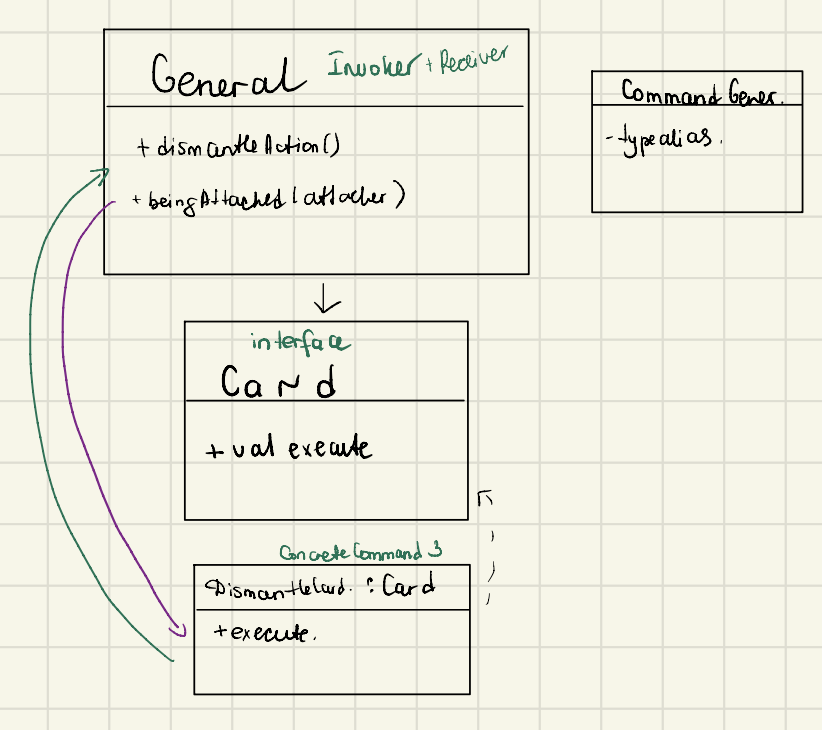 General Invoker + Receiver
+ dismantleAction()
+ beingAttached(attacker)
Command Gener.
- typealias.
interface
Card
+ val execute
ConcreteCommand 3
DismantleCard. : Card
+ execute.